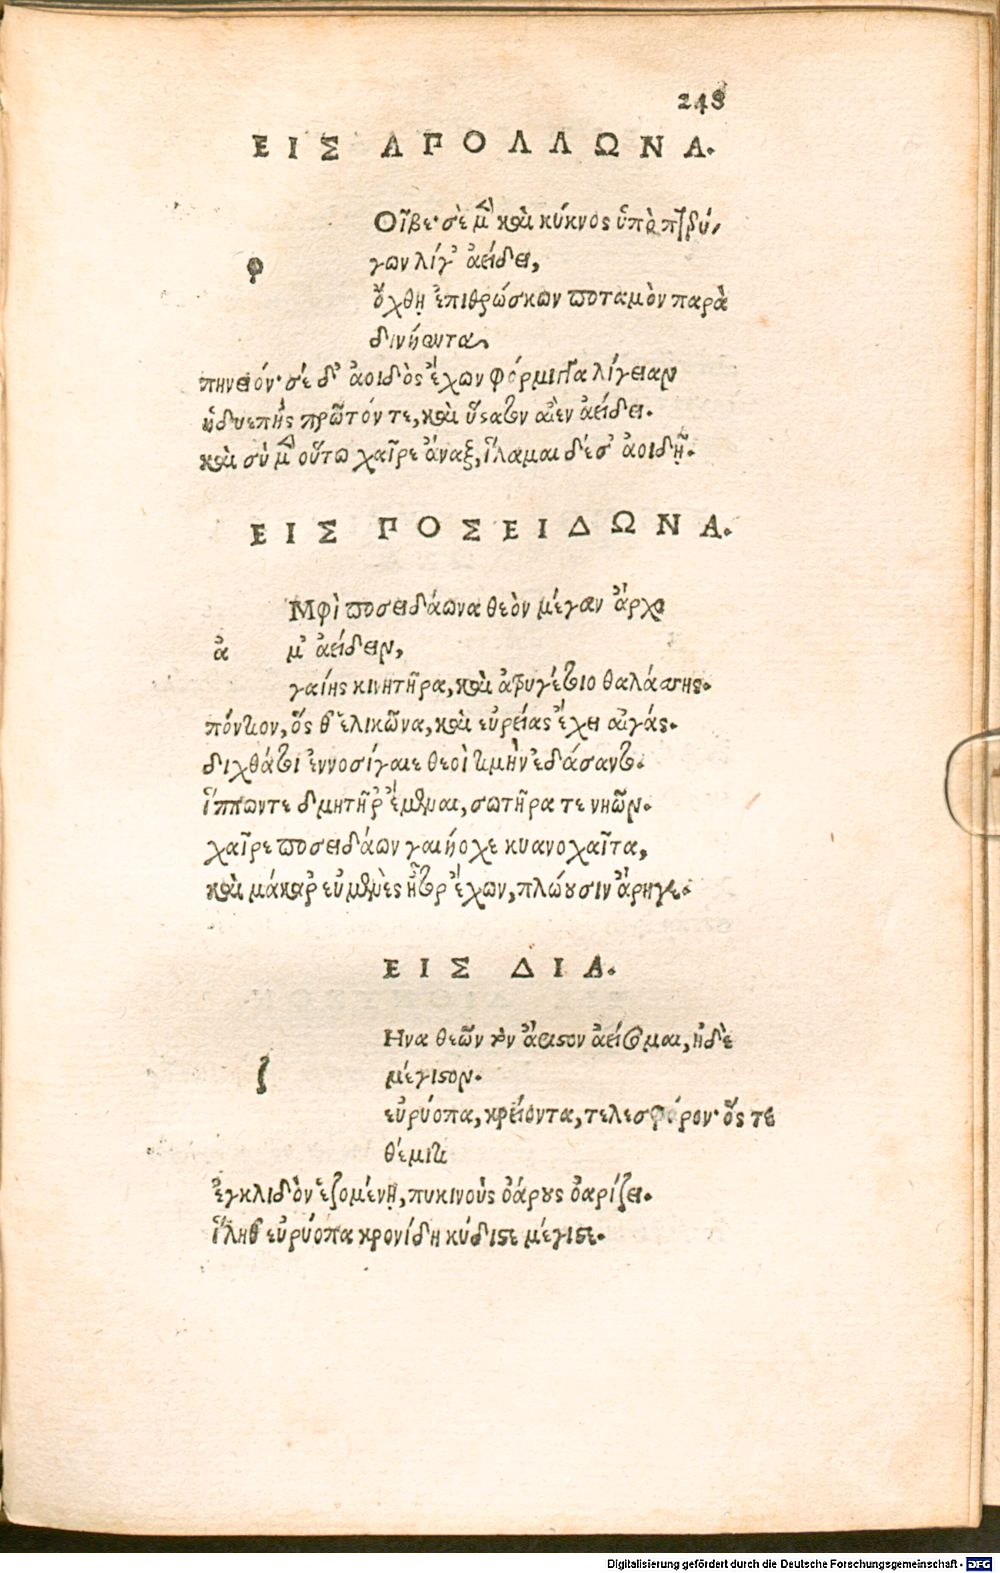 248
ΕΙΣ ΑΠΟΛΛΩΝΑ.
φ Οῖβε· σὲ μὲν καὶ κύκνος ὑπὸ πτερύ,
γων λίγ' ἀείδει,
ὄχθῃ ἐπιθρώσκων ποταμὸν παρὰ
δινήεντα
πηνειόν· σὲ δ' ἀοιδὸς ἔχων φόρμιγγα λίγειαν
ἡδυεπὴς πρῶτόν τε, καὶ ὕστατον αἰὲν ἀείδει.
καὶ σὺ μὲν οὕτω χαῖρε ἄναξ, ἵλαμαι δέ σ' ἀοιδῇ.
ΕΙΣ ΠΟΣΕΙΔΩΝΑ.
ἀ Μφὶ ποσειδάωνα θεὸν μέγαν ἄρχο
μ' ἀείδειν,
γαίης κινητῆρα, καὶ ἀτρυγέτοιο θαλάσσης.
πόντιον, ὅς θ' ἑλικῶνα, καὶ εὐρείας ἔχει αἰγάς.
διχθάτοι ἐννοσίγαιε θεοὶ τιμὴν ἐδάσαντο.
ἵππων τε δμητῆρ' ἔμεναι, σωτῆρα τε νηῶν.
χαῖρε ποσειδάων γαιήοχε κυανοχαῖτα,
καὶ μάκαρ εὐμενὲς ἦτορ ἔχων, πλώουσιν ἄρηγε.
ΕΙΣ ΔΙΑ.
ζ Ηνα θεῶν τὸν ἄριστον ἀείσομαι, ἠδὲ
μέγιστον.
εὐρύοπα, κρείοντα, τελεσφόρον· ὅς τε
θέμιτι
ἐγκλιδὸν ἑζομένῃ, πυκινοὺς ὀάρους ὀαρίζει.
ἵληθ' εὐρύοπα κρονίδη κύδιστε μέγιστε.
Digitalisierung gefördert durch die Deutsche Forschungsgemeinschaft - DFG